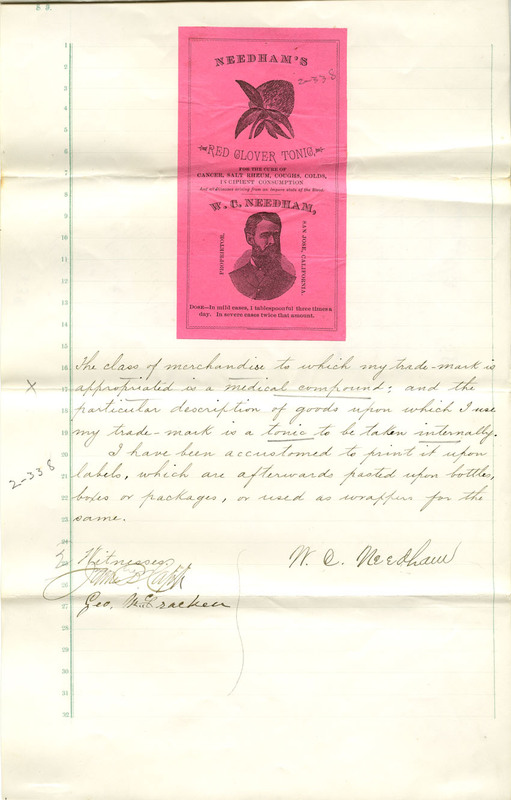 8 3.
NEEDHAM'S
2-338
RED CLOVER TONIC,
FOR THE CURE OF
CANCER, SALT RHEUM, COUGHS, COLDS,
INCIPIENT CONSUMPTION
And all diseases arising from an impure state of the Blood.
W. C. NEEDHAM,
PROPRIETOR.
SAN JOSE, CALIFORNIA
DOSE—In mild cases, 1 tablespoonful three times a
day. In severe cases twice that amount.
1
2
3
4
5
6
7
8
9
10
11
12
13
14
15
16
17
18
19
20
21
22
23
24
27
28
29
30
31
32
The class of merchandise to which my trade-mark is
X appropriated is a medical compound; and the
particular description of goods upon which I use
my trade-mark is a tonic to be taken internally.
I have been accustomed to print it upon
2-338
labels, which are afterwards pasted upon bottles,
boxes or packages, or used as wrappers for the
same.
Witnesses
W. C. Needham
Geo. McCracken